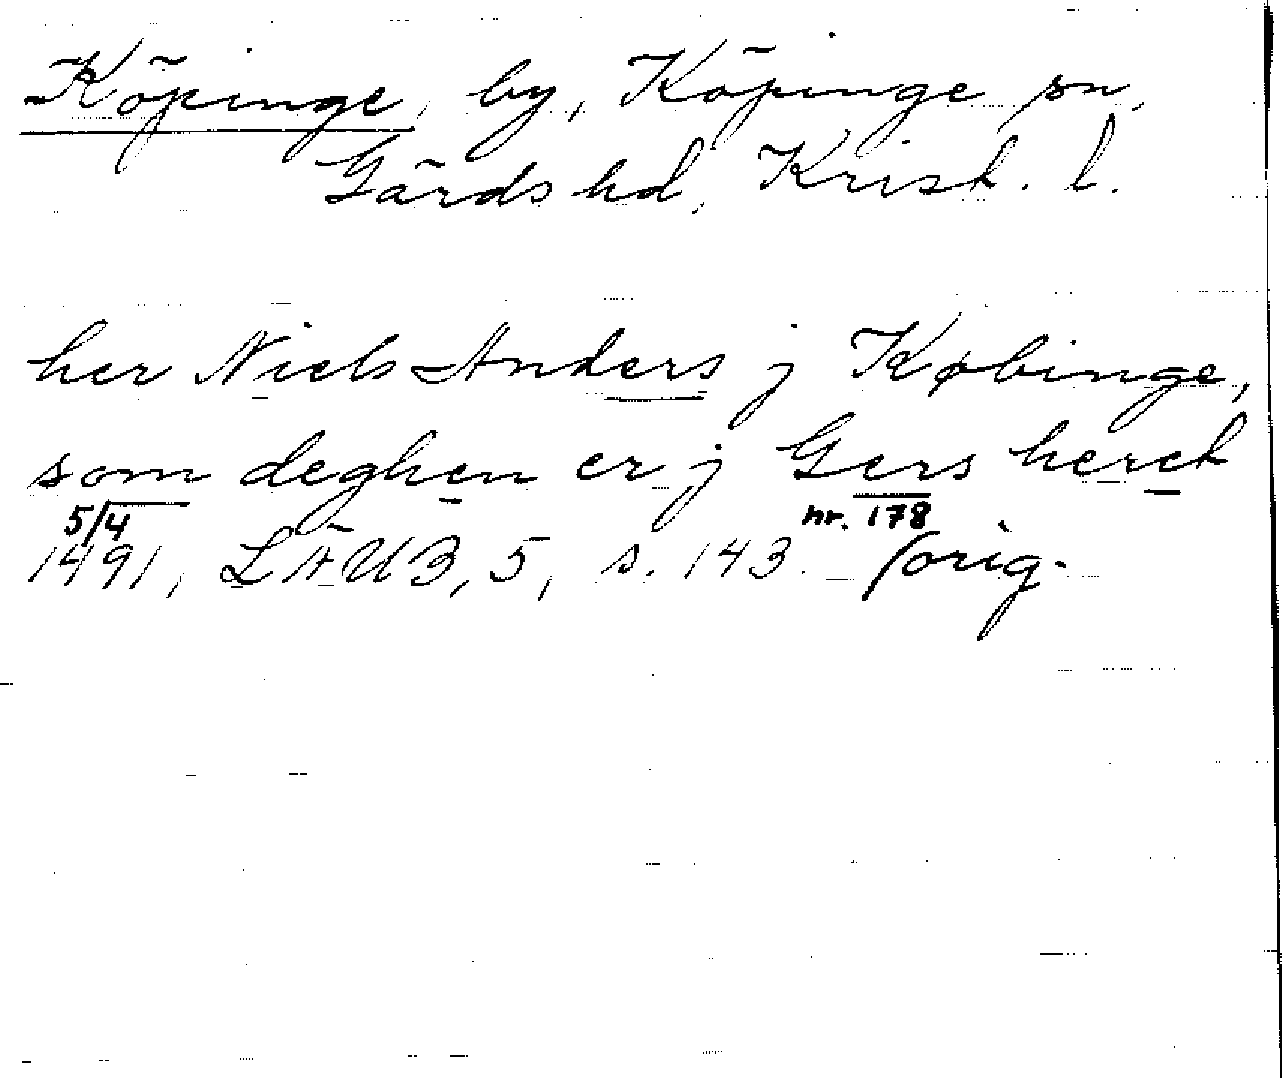 Köpinge, by, Köpinge sn,
Gärds hd, Krist. l.
her Niels Anders j Købinge,
som deghen er j Gers heret
5/4 nr. 178
1491, LÄUB, 5, s. 143. orig.